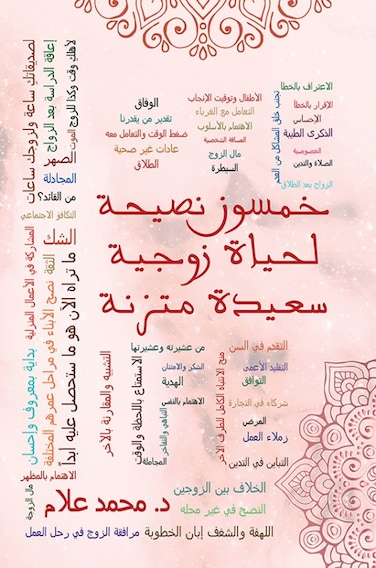 الاعتراف بالخطأ
الإقرار بالخطأ
الإحساس
الذكرى الطيبة
الخصوصية
الصلاة والتدين
الزواج بعد الطلاق
تجنب خلق المشاكل من العدم
الأطفال وتوقيت الإنجاب
التعامل مع الغرباء
الاهتمام بالأسلوب
المسافة الشخصية
مال الزوج
السيطرة
الوفاق
تقدير من يقدرنا
ضغط الوقت والتعامل معه
عادات غير صحية
الطلاق
لأهلك وقت وكذا للزوج
الموت
إعاقة الدراسة بعد الزواج
لصديقاتك ساعة ولزوجك ساعات
الصهر
المجادلة
من القائد؟
التكافؤ الاجتماعي
خمسون نصيحة
لحياة زوجية
سعيدة متزنة
الشك
الثقة
ما تراه الآن هو ما ستحصل عليه أبداً
نصح الأبناء في مراحل عمرهم المختلفة
المشاركة في الأعمال المنزلية
بداية بمعروف وإحسان
التقدم في السن
التقليد الأعمى
التوافق
شركاء في التجارة
المرض
زملاء العمل
التباين في التدين
منح الانتباه الكامل للطرف الآخر
من عشيرته وعشيرتها
الشكر والامتنان
الهدية
الاهتمام بالنفس
التباهي والتفاخر
الاستمتاع باللحظة والوقت
المجاملة
التشبيه والمقارنة بالآخر
الاهتمام بالمظهر
مال الزوجة
الخلاف بين الزوجين
د. محمد علام
النصح في غير محله
اللهفة والشغف إبان الخطوبة
مرافقة الزوج في رحل العمل